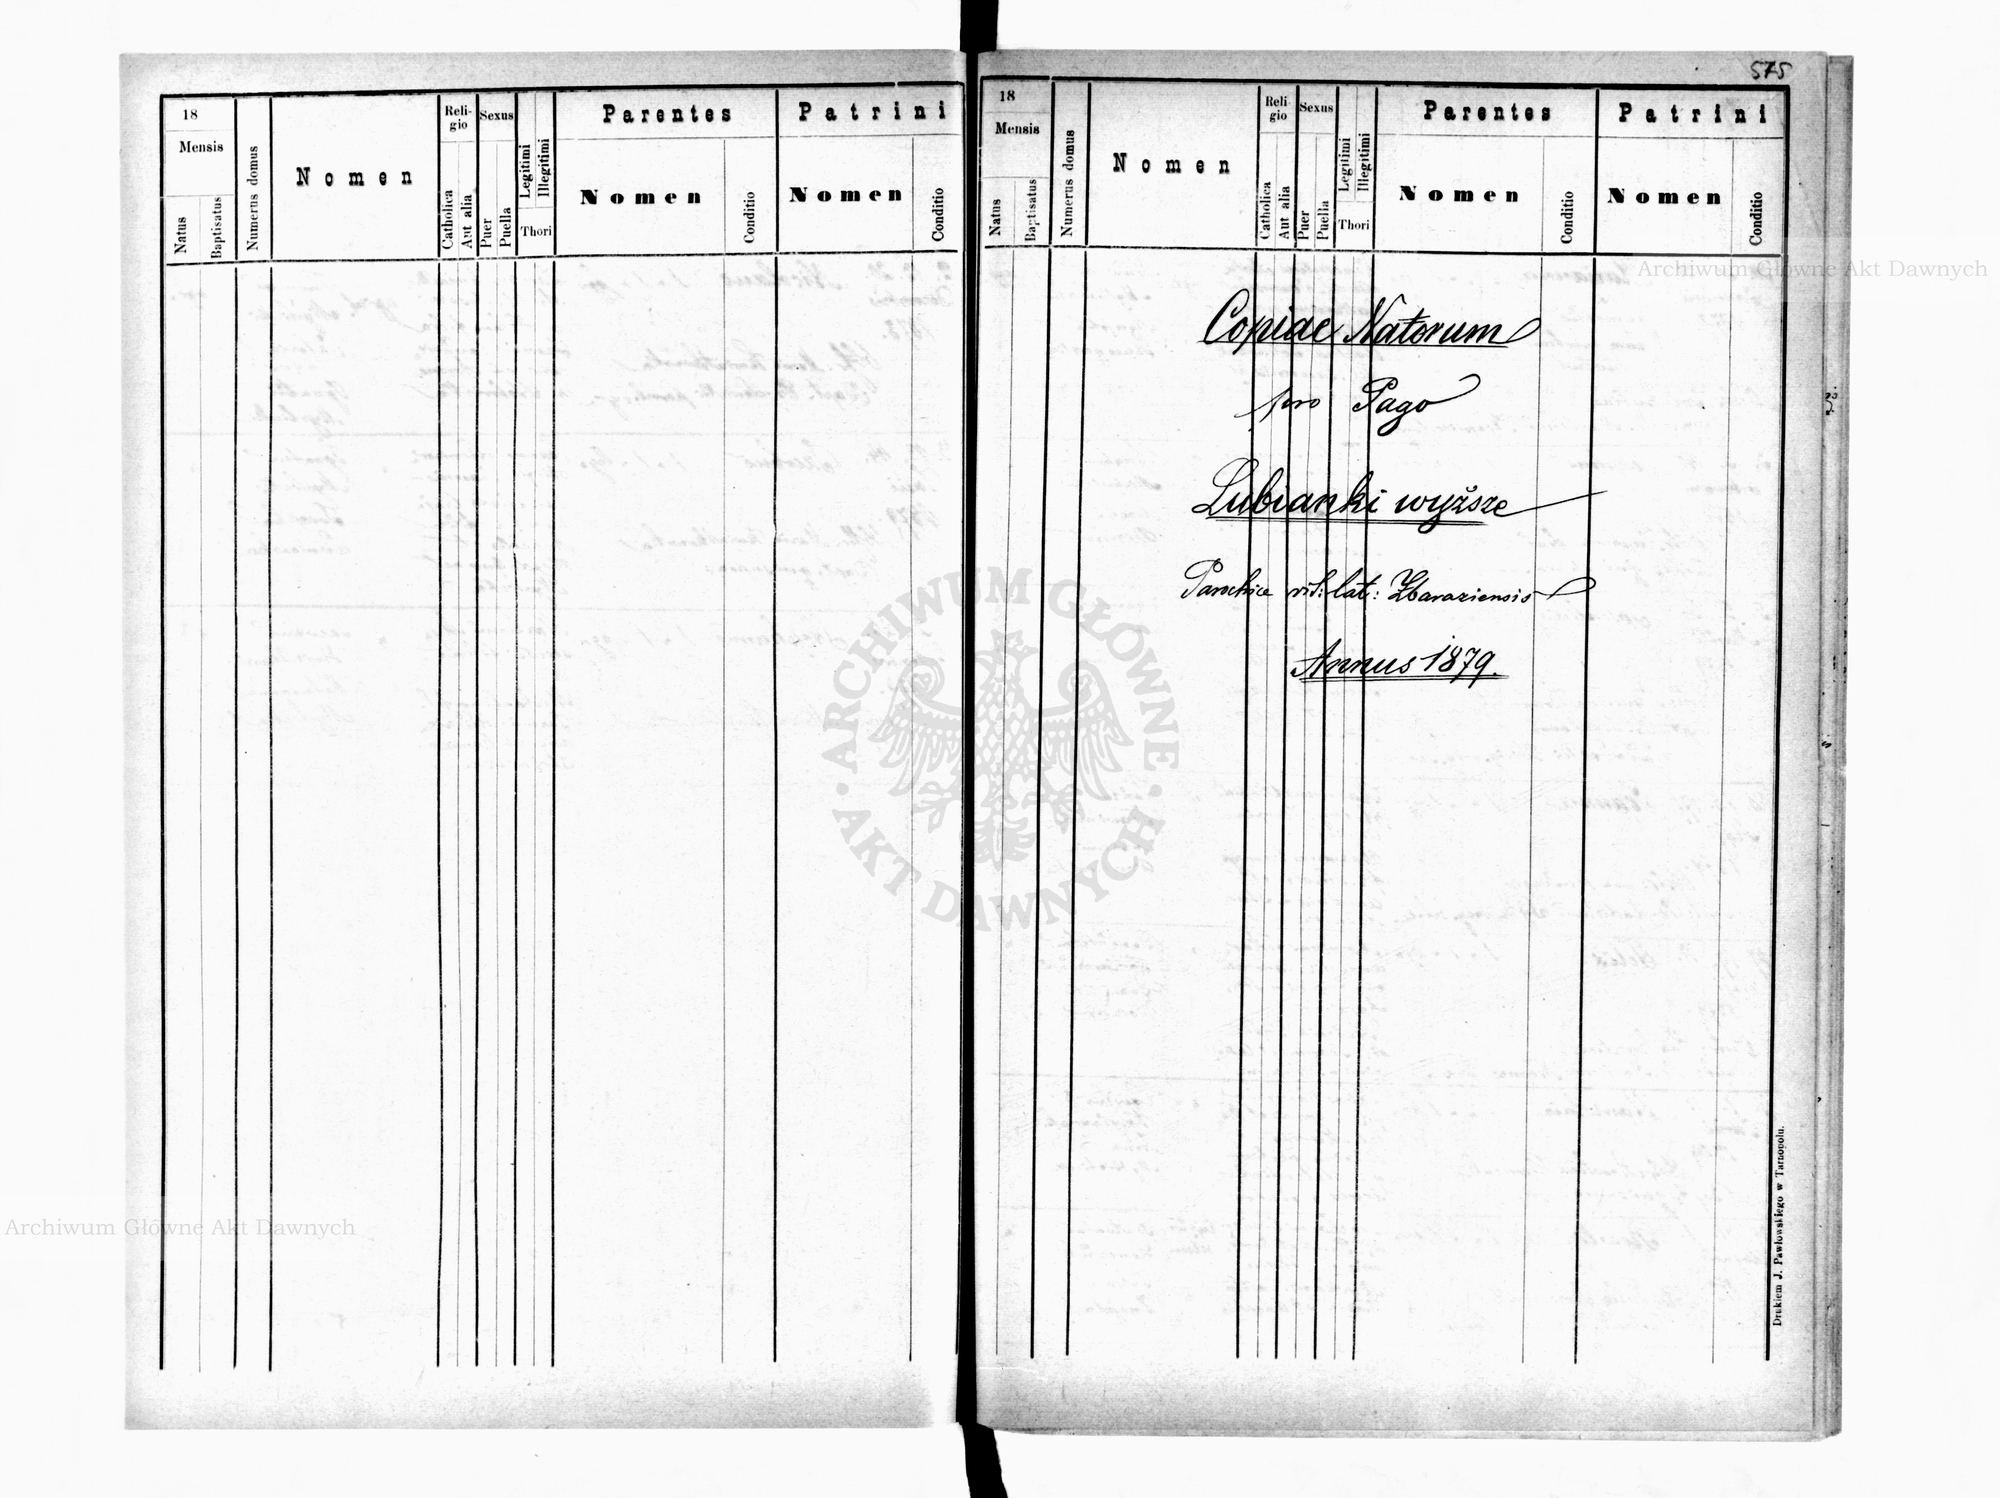 18
Mensis
Natus
Baptisatus
Numerus domus
Nomen
Religio
Catholica
Aut alia
Sexus
Puer
Puella
Legitimi
Illegitimi
Thori
Parentes
Nomen
Conditio
Patrini
Nomen
Conditio
575
18
Mensis
Natus
Baptisatus
Numerus domus
Nomen
Religio
Catholica
Aut alia
Sexus
Puer
Puella
Legitimi
Illegitimi
Thori
Parentes
Nomen
Conditio
Patrini
Nomen
Conditio
Copiae Natorum
pro Pago
Lubianki wyższe
Parochiae rit: lat: Zbaraziensis
Annus 1879.
Drukiem J. Pawłowskiego w Tarnopolu.
Archiwum Główne Akt Dawnych
ARCHIWUM GŁÓWNE
AKT DAWNYCH
Archiwum Główne Akt Dawnych